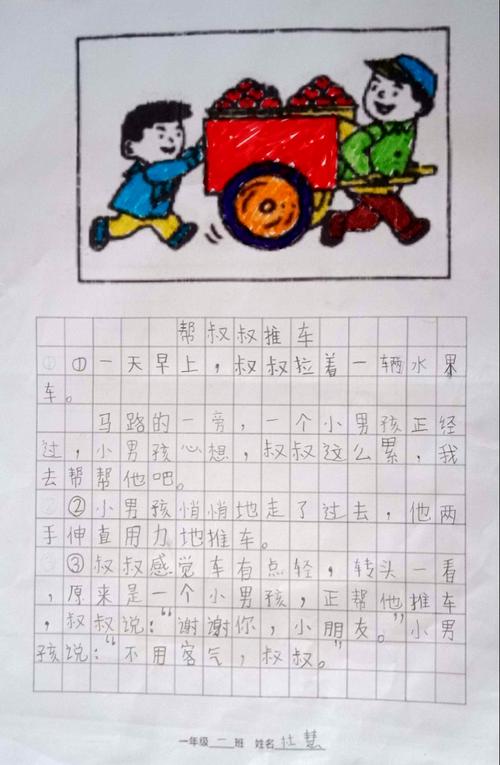 帮叔叔推车
① 一天早上，叔叔拉着一辆水果
车。
马路的一旁，一个小男孩正经
过，小男孩心想，叔叔这么累，我
去帮帮他吧。
② 小男孩悄悄地走了过去，他两
手伸直用力地推车。
③ 叔叔感觉车有点轻，转头一看
，原来是一个小男孩，正帮他推车
，叔叔说：“谢谢你，小朋友。”小男
孩说：“不用客气，叔叔。”
一年级 一 班 姓名 杜慧